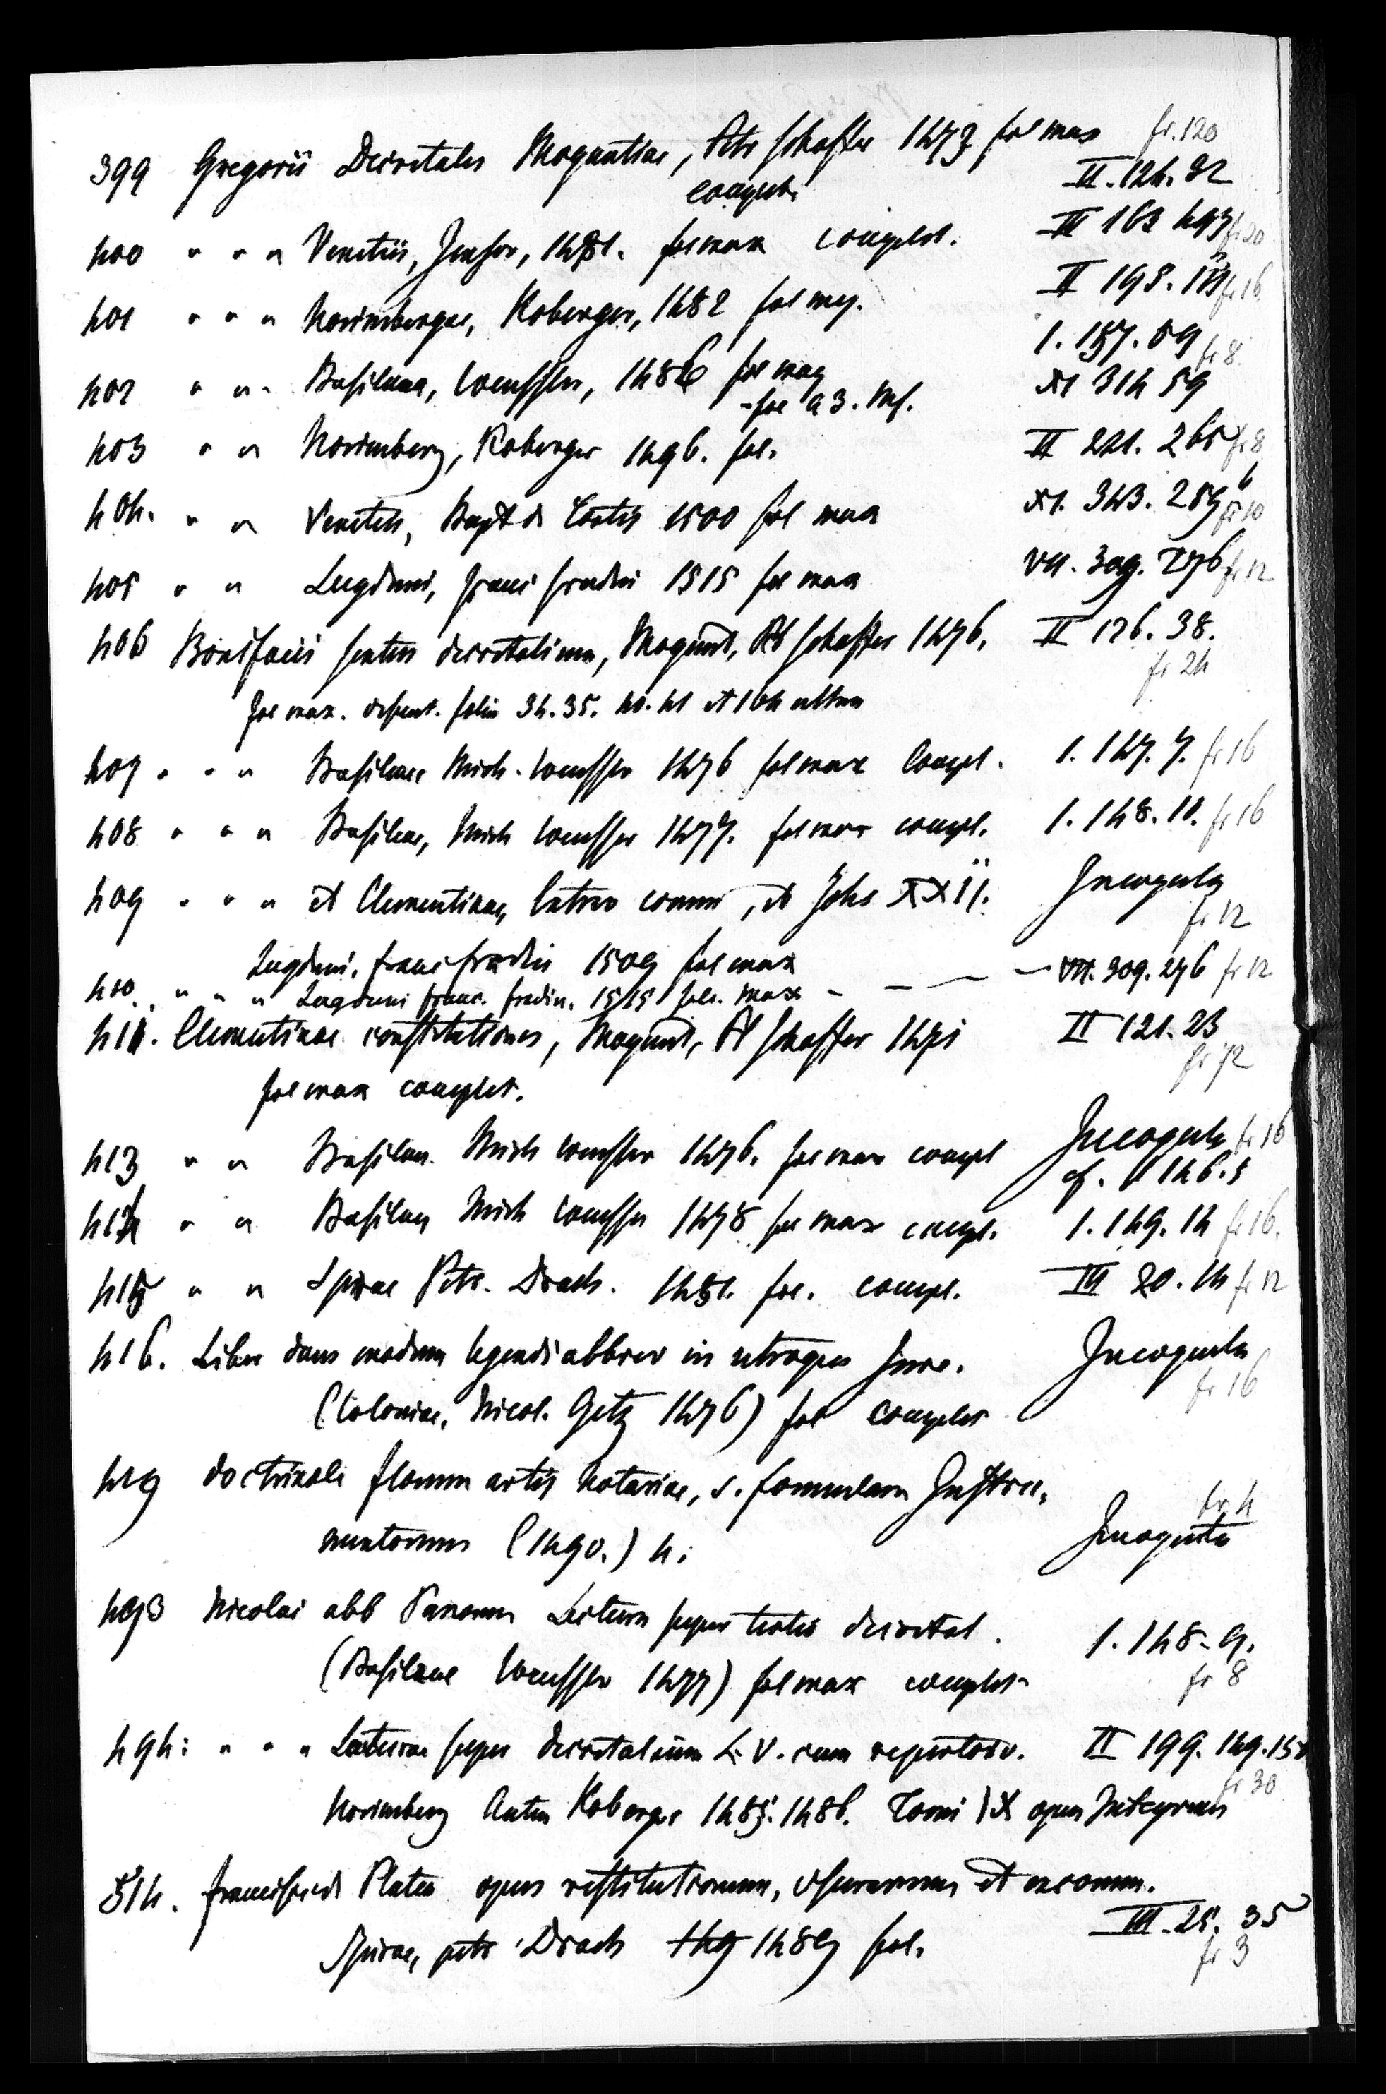 399 Gregorii Decretales Moguntiae, Petr Schoffer 1473 fol max fr. 120
complet. II. 124. 32
400 " " " Venetiis, Jenson, 1481. fol max complet. III 163 497 fr 20
401 " " " Norimbergae, Koberger, 1482 fol mag. II 195. fr 16
402 " " " Basileae, Wenssler, 1486 fol mag 1. 157. 59 fr 8
fol a 3. Ms. XI 314 59
403 " " Norimberg, Koberger 1496. fol. II 221. 265 fr 8
404. " " Venetiis, Bapt de Tortis 1500 fol max XI. 343. 259 fr 10
405 " " Lugduni, Franc Fradin 1515 fol max VII. 309. 276 fr 12
406 Bonifacii sextus decretalium, Mogunt, Pet Schoffer 1476. II 126. 38.
fol max. desunt. folia 34. 35. 40. 41 et 104 ultim fr 24
407 " " " Basileae Mich. Wenssler 1476 fol max Compl. 1. 147. 7. fr 16
408 " " " Basileae, Mich Wenssler 1477. fol max compl. 1. 148. 10. fr 16
409 " " " et Clementinae, Extrav comm, et Johs XXII. Incognita
fr 12
Lugduni, Franc Fradin 1509 fol max
410. " " " Lugduni Franc. Fradin. 1515 fol. max - - - VII. 309. 276 fr 12
411. Clementinae constitutiones, Mogunt, Pet Schoffer 1471 II 121. 23
fol max complet. fr 72
413 " " Basileae Mich Wenssler 1476. fol max compl Incognita fr 16
cf. 1 146. 5
414 " " Basileae Mich Wenssler 1478 fol max compl. 1. 149. 14 fr 16.
415 " " Spirae Petr. Drach. 1481. fol. compl. III 20. 14 fr 12
416. Liber dans modum legendi abbrev in utroque Jure. Incognita
(Coloniae, Nicol. Getz 1476) fol complet fr 16
419 doctrinale florum artis notariae, s. formularium Instru- fr 4
mentorum (1490.) 4. Incognita
493 Nicolai abb Panorm Lectura super textus decretal. 1. 148. 9.
(Basileae Wenssler 1477) fol max complet fr 8
494: " " " Lecturae super decretalium L. V. cum repertorio. II 199. 149. 150
fr 30
Norimberg Anton Koberger 1485. 1486. Tomi IX opus Integrum
514. Francisci de Platea opus restitutionum, usurarum et excomm.
Spirae, petr Drach 149 1489 fol. III. 25. 35
fr 3